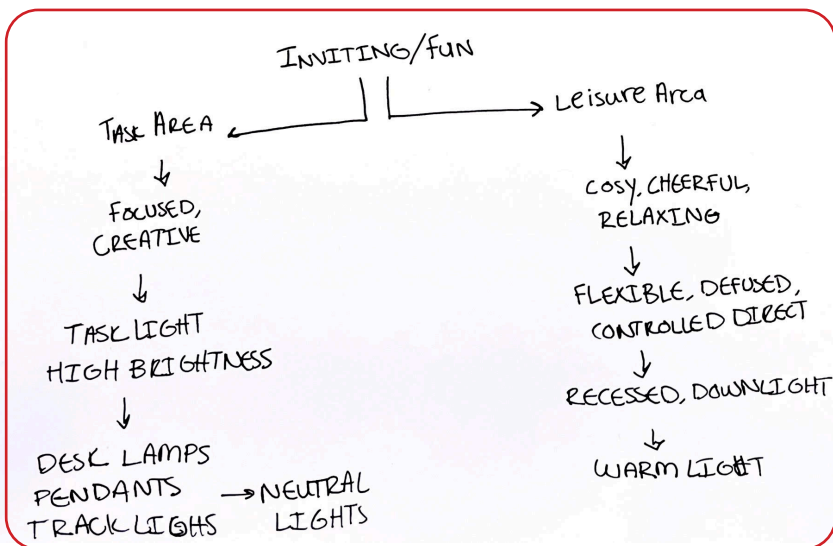 INVITING/FUN
TASK AREA
FOCUSED,
CREATIVE
TASK LIGHT
HIGH BRIGHTNESS
DESK LAMPS
PENDANTS
TRACK LIGHTS
NEUTRAL
LIGHTS
Leisure Area
COSY, CHEERFUL,
RELAXING
FLEXIBLE, DEFUSED,
CONTROLLED DIRECT
RECESSED, DOWNLIGHT
WARM LIGHT